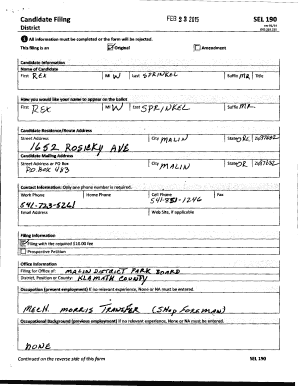 Candidate Filing
District
FEB 23 2015
SEL 190
All information must be completed or the form will be rejected.
This filing is an
Original
Amendment
Candidate Information
Name of Candidate
First REX MI W Last SPRINKEL Suffix MR. Title
How you would like your name to appear on the ballot
First REX MI W Last SPRINKEL Suffix MR.
Candidate Residence/Route Address
Street Address City MALIN State OR.
1652 ROSICKY AVE
Candidate Mailing Address
Street Address or PO Box City MALIN State OR.
P.O. BOX 483
Contact Information: Only one phone number is required.
Work Phone Home Phone Cell Phone Fax
541-723-5261
Email Address Web Site, if applicable
Filing Information
Filing with the required $10.00 fee
Prospective Petition
Office Information
Filing for Office of: MALIN DISTRICT PARK BOARD
District, Position or County: KLAMATH COUNTY
Occupation (present employment) if no relevant experience, None or NA must be entered.
MECH. MORRIS TRANSFER (SHOP FOREMAN)
Occupational Background (previous employment) if no relevant experience, None or NA must be entered.
NONE
Continued on the reverse side of this form SEL 190